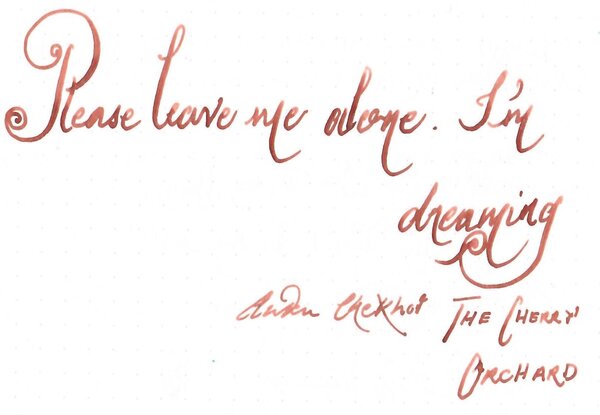 Please leave me alone. I'm
dreaming
Anton Chekhov THE CHERRY
ORCHARD